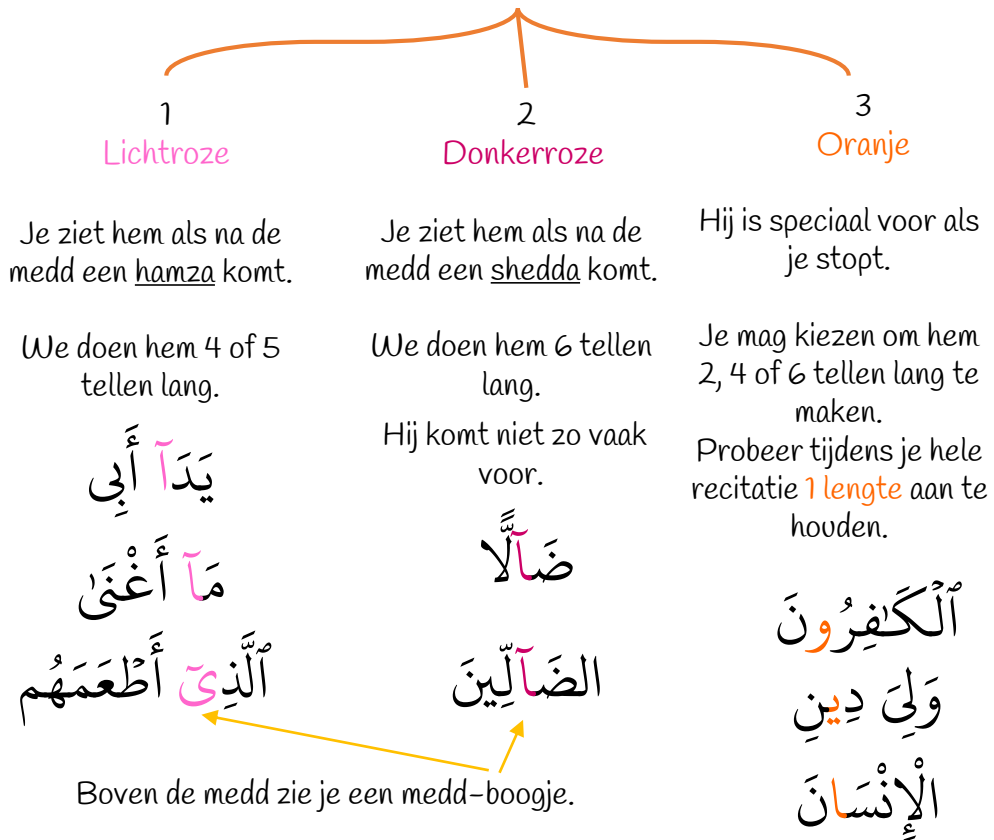 1
Lichtroze
Je ziet hem als na de
medd een hamza komt.
We doen hem 4 of 5
tellen lang.
يَدَآ أَبِى
مَآ أَغْنَىٰ
ٱلَّذِىٓ أَطْعَمَهُم
2
Donkerroze
Je ziet hem als na de
medd een shedda komt.
We doen hem 6 tellen
lang.
Hij komt niet zo vaak
voor.
ضَآلًّا
الضَآلِّينَ
Boven de medd zie je een medd-boogje.
3
Oranje
Hij is speciaal voor als
je stopt.
Je mag kiezen om hem
2, 4 of 6 tellen lang te
maken.
Probeer tijdens je hele
recitatie 1 lengte aan te
houden.
ٱلْكَـٰفِرُونَ
وَلِىَ دِينِ
الْإِنْسَانَ